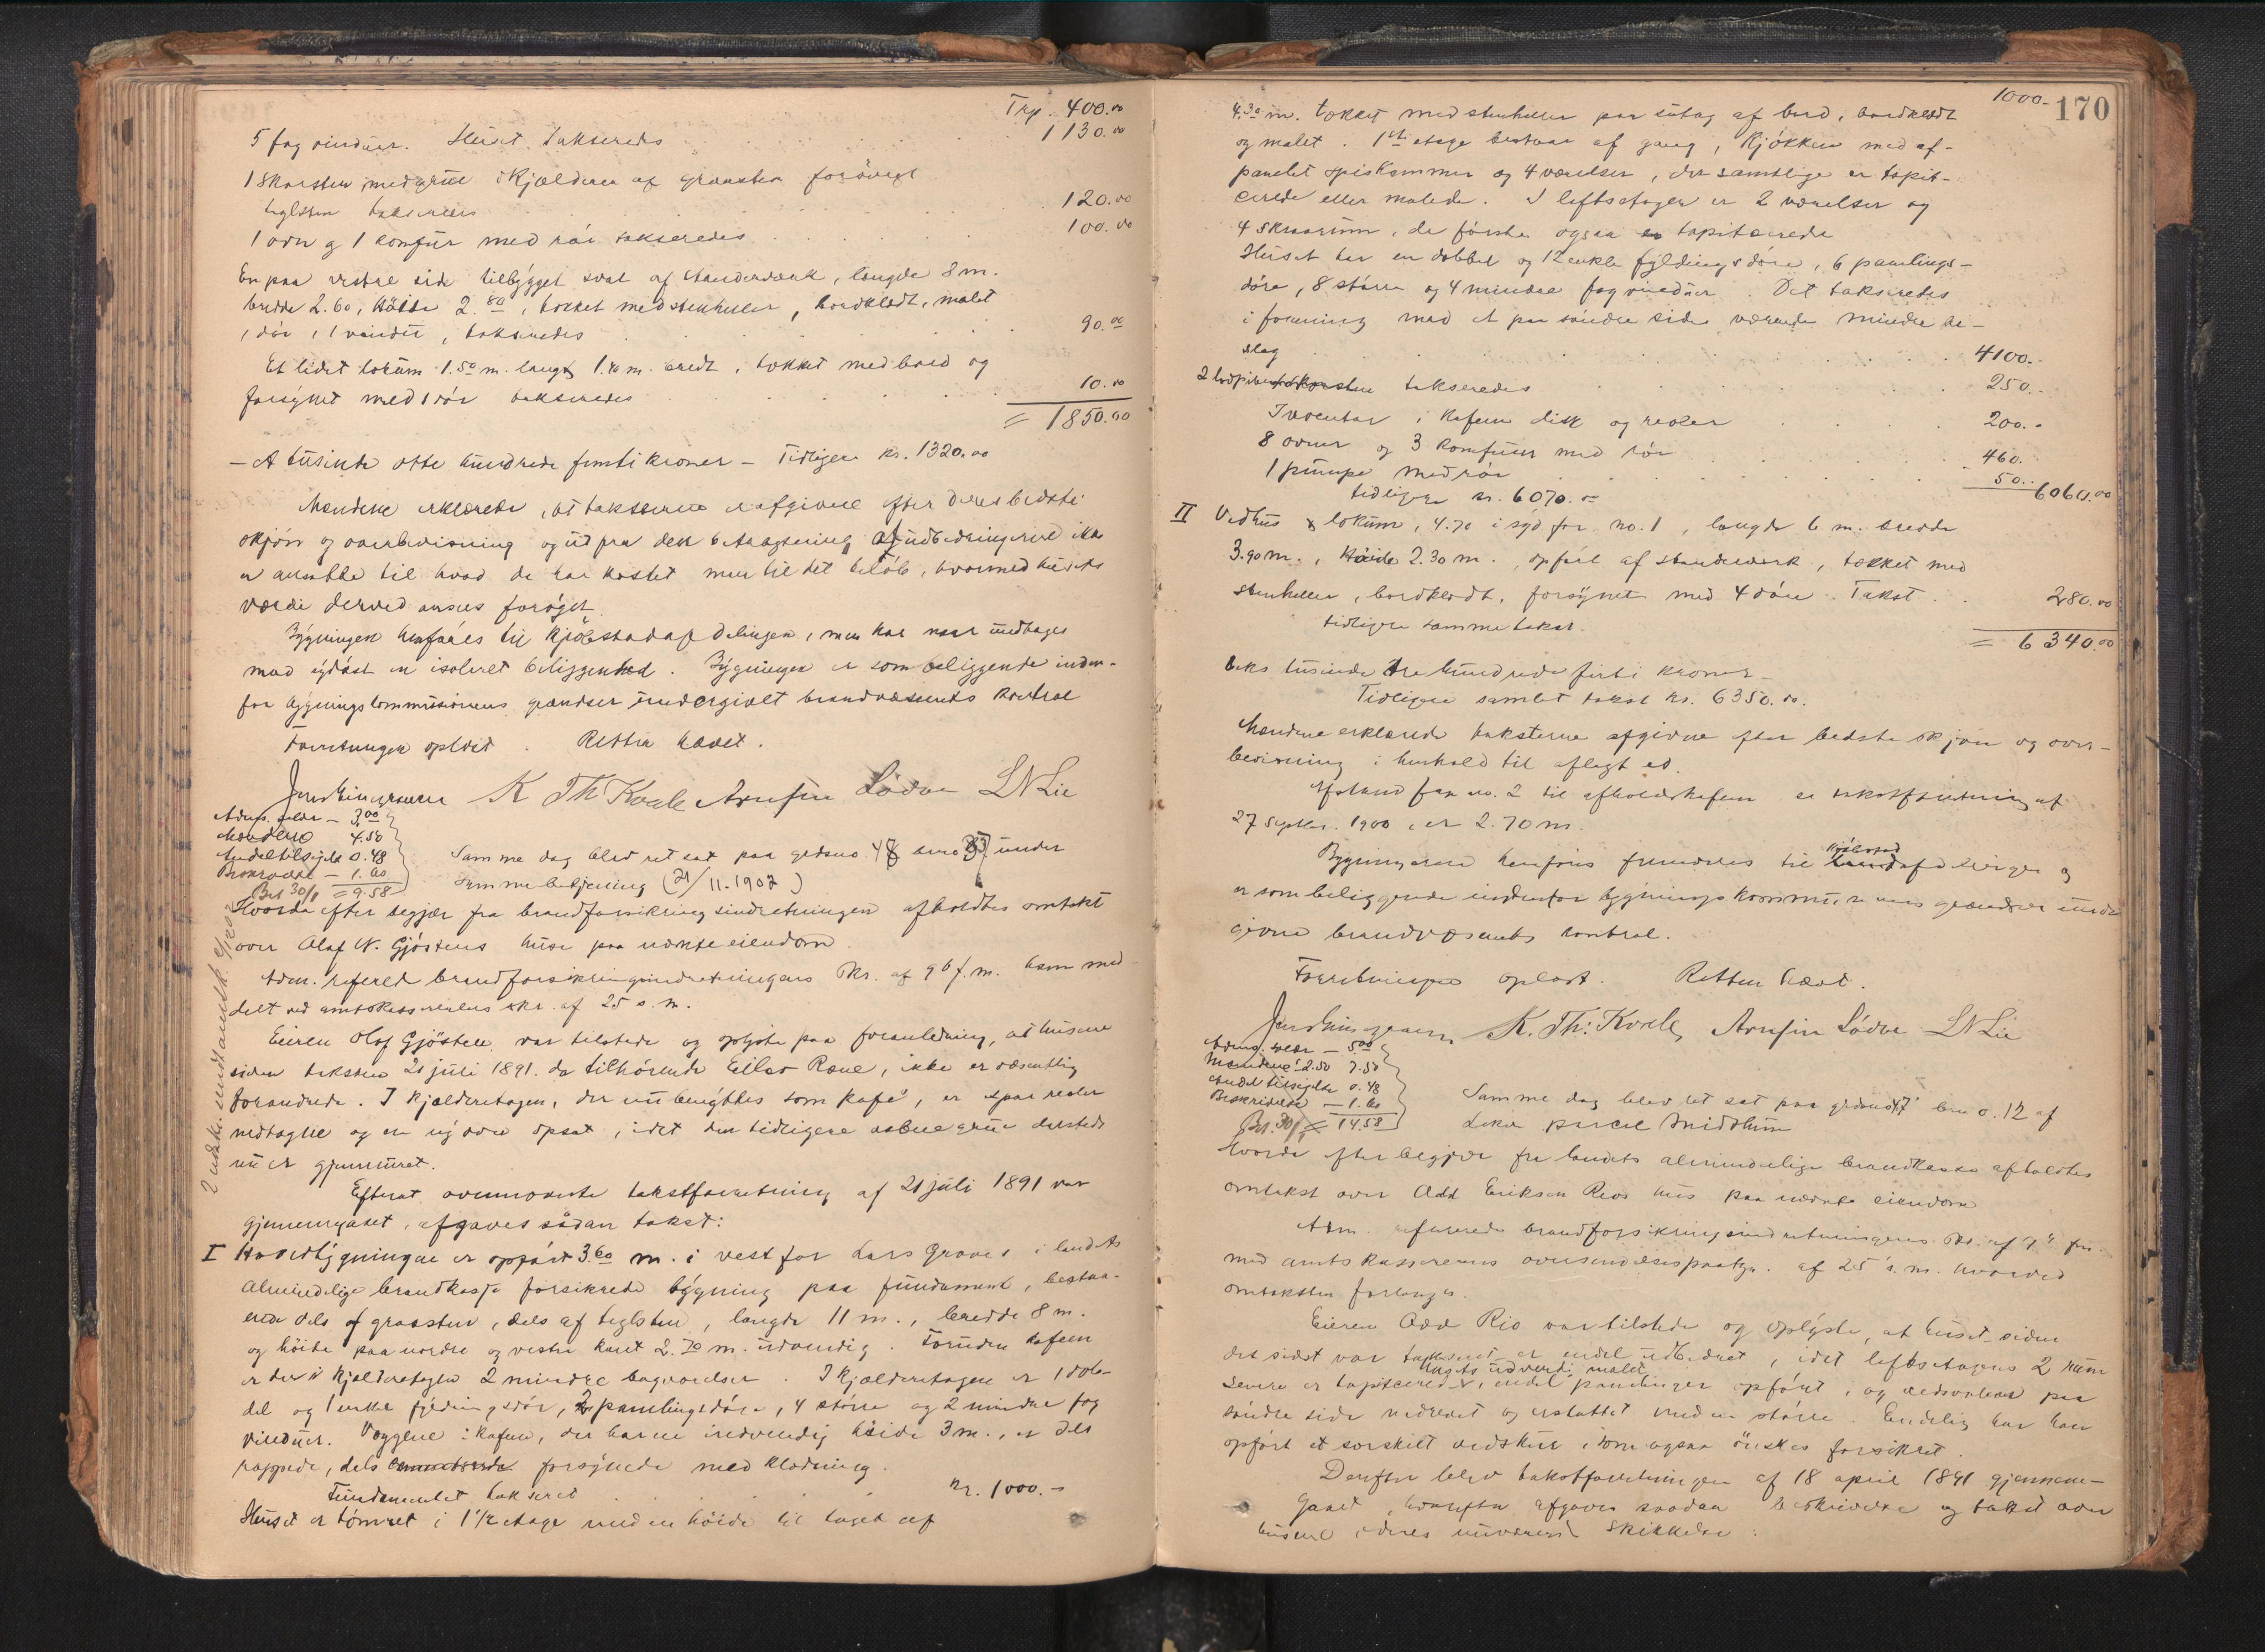 Trp. 400.00
5 fag vinduer. Huset takseredes 1130.00
1 Skorsten med grue i Kjælderen af graasten forøvrigt
teglsten takseredes 120.00
1 ovn og 1 komfur med rør takseredes 100.00
En paa vestre side tilbygget sval af standerverk, længde 8 m.
bredde 2.60, Høide 2.80, tækket med stenheller, bordklædt, malet
1 dør, 1 vindu, takseredes 90.00
Et lidet lokum 1.50 m. langt, bredt, tækket med bord og
forsynet med 1 dør takseredes 10.00
= 1850.00
— Et tusinde otte hundrede femti kroner — Tidligere kr. 1320.00
Mændene erklærede, at taksterne er afgivne efter deres bedste
skjøn og overbevisning og ud fra den betragtning at udbedringerne ikke
er ansatte til hvad de har kostet men til det beløb, hvormed husets
værdi derved ansees forøget.
Bygningen henføres til kjøbstadafdelingen, men har naar undtages
mod sydøst en isoleret beliggenhed. Bygningen er som beliggende inden-
for bygningskommissionens grændser undergivet brandvæsenets kontrol
Forretningen opløst. Retten hævet.
K Th Kvale Arnfin Lødve LN Lie
Adms. gebr — 3.00
Mændene 4.50
Andel tilsigelse 0.48
Beskrivelse — 1.60
Bet 30/1 = 9.58
Samme dag blev ret sat paa grdsno. 48 brno 37 under
samme betjening (21/11.1902)
Hvorda efter begjær fra brandforsikringsindretningen afholdtes omtakst
over Olaf N. Gjøstens huse paa nævnte eiendom
Adm. refererede brandforsikringsindretningens skr. af 9de f. m. ham med-
delt ved amtskassererens skr. af 25 s. m.
Eieren Olaf Gjøsten var tilstede og oplyste paa foranledning, at husene
siden taksten 21 juli 1891. da tilhørende Eilert Rane, ikke er væsentlig
forandrede. I kjælderetagen, der nu benyttes som kafé, er et par reoler
nedtagne og en ny ovn opsat, idet den tidligere aabne grue dersteds
nu er gjenmuret.
Efterat ovennævnte takstforretning af 21 juli 1891 var
gjennemgaaet, afgaves sådan takst:
I Hovedbygningen er opført 3.60 m. i vest for Lars Groves i landets
almindelige brandkasse forsikrede bygning paa fundament, bestaa-
ende dels af graasten, dels af teglsten, længde 11 m., bredde 8 m.
og høide paa nordre og vestre kant 2.70 m. udvendig. Foruden kafeen
er der i kjælderetagen 2 mindre bagværelser. I kjælderetagen er 1 dob-
bel og 1 enkel fyldingsdør, 2 panelingsdøre, 4 større og 2 mindre fag
vinduer. Væggene i kafeen, der har en indvendig høide 3 m., er dels
rappede, dels forsynede med klædning.
Fundamentet takseret kr. 1000.-
Huset er tømret i 1 1/2 etage med en høide til taget af
2 udskr. sendt amtsk. 9/12 02
1000.- 170
4.30 m. tækket med stenheller paa sutag af bord, bordklædt
og malet. 1ste etage bestaar af gang, Kjøkken med af-
panelet spiskammer og 4 værelser, der samtlige er tapet-
cerede eller malede. I loftsetagen er 2 værelser og
4 skraarum, de første ogsaa tapetcerede
Huset har en dobbel og 12 enkle fyldingsdøre, 6 panelings-
døre, 8 større og 4 mindre fag vinduer. Det takseredes
i forening med et paa søndre side værende mindre be-
slag 4100.-
2 takseredes 250.-
Inventar i kafeen disk og reoler 200.-
8 ovner og 3 komfurer med rør 460.
1 pumpe med rør 50.. 6060.00
tidligere kr. 6070.00
II Vedhus & lokum, 4.70 i syd for no. 1, længde 6 m. bredde
3.90 m., Høide 2.30 m., opført af standerverk, tækket med
stenheller, bordklædt, forsynet med 4 døre. Takst 280.00
tidligere samme takst.
= 6340.00
seks tusinde tre hundrede firti kroner —
Tidligere samlet takst kr. 6350.00.
Mændene erklærede taksterne afgivne efter bedste skjøn og over-
bevisning i henhold til aflagt ed.
Afstand fra no. 2 til afholdskafeen se takstforretning af
27 septbr. 1900, er 2.70 m.
Bygningerne henføres fremdeles til kjøbstadafdelingen og
er som beliggende indenfor bygningskommissionens grændser under-
givne brandvæsenets kontrol.
Forretningen opløst. Retten hævet.
K. Th: Kvale, Arnfin Lødve LN Lie
Adms. gebr — 5.00
Mændene: 2.50 7.50
Andel tilsigelse 0.48
Beskrivelse — 1.60
Bet. 30/1 = 14.58
Samme dag blev ret sat paa grdsno 47 brno. 12 af
Leker parcel Midttun
Hvorda efter begjær fra landets almindelige brandkasse afholdtes
omtakst over Odd Eriksen Rios hus paa nævnte eiendom
Adm. refererede brandforsikringsindretningens skr. af 9de f. m.
med amtskassererens oversendelsespaategn. af 25 s. m. hvorved
omtaksten forlanges.
Eieren Odd Rio var tilstede og oplyste, at huset siden
det sidst var takseret er endel udbedret, idet loftsetagens 2 rum
huset udvendig malet
senere er tapetceret, endel panelinger opført, og vedsvalen paa
søndre side nedrevet og erstattet med en større. Endelig har han
opført et særskilt vedskur, som ogsaa ønskes forsikret.
Derefter blev takstforretningen af 18 april 1891 gjennem-
gaaet, hvorefter afgaves saadan beskrivelse og takst over
husene i deres nuværende skikkelse: